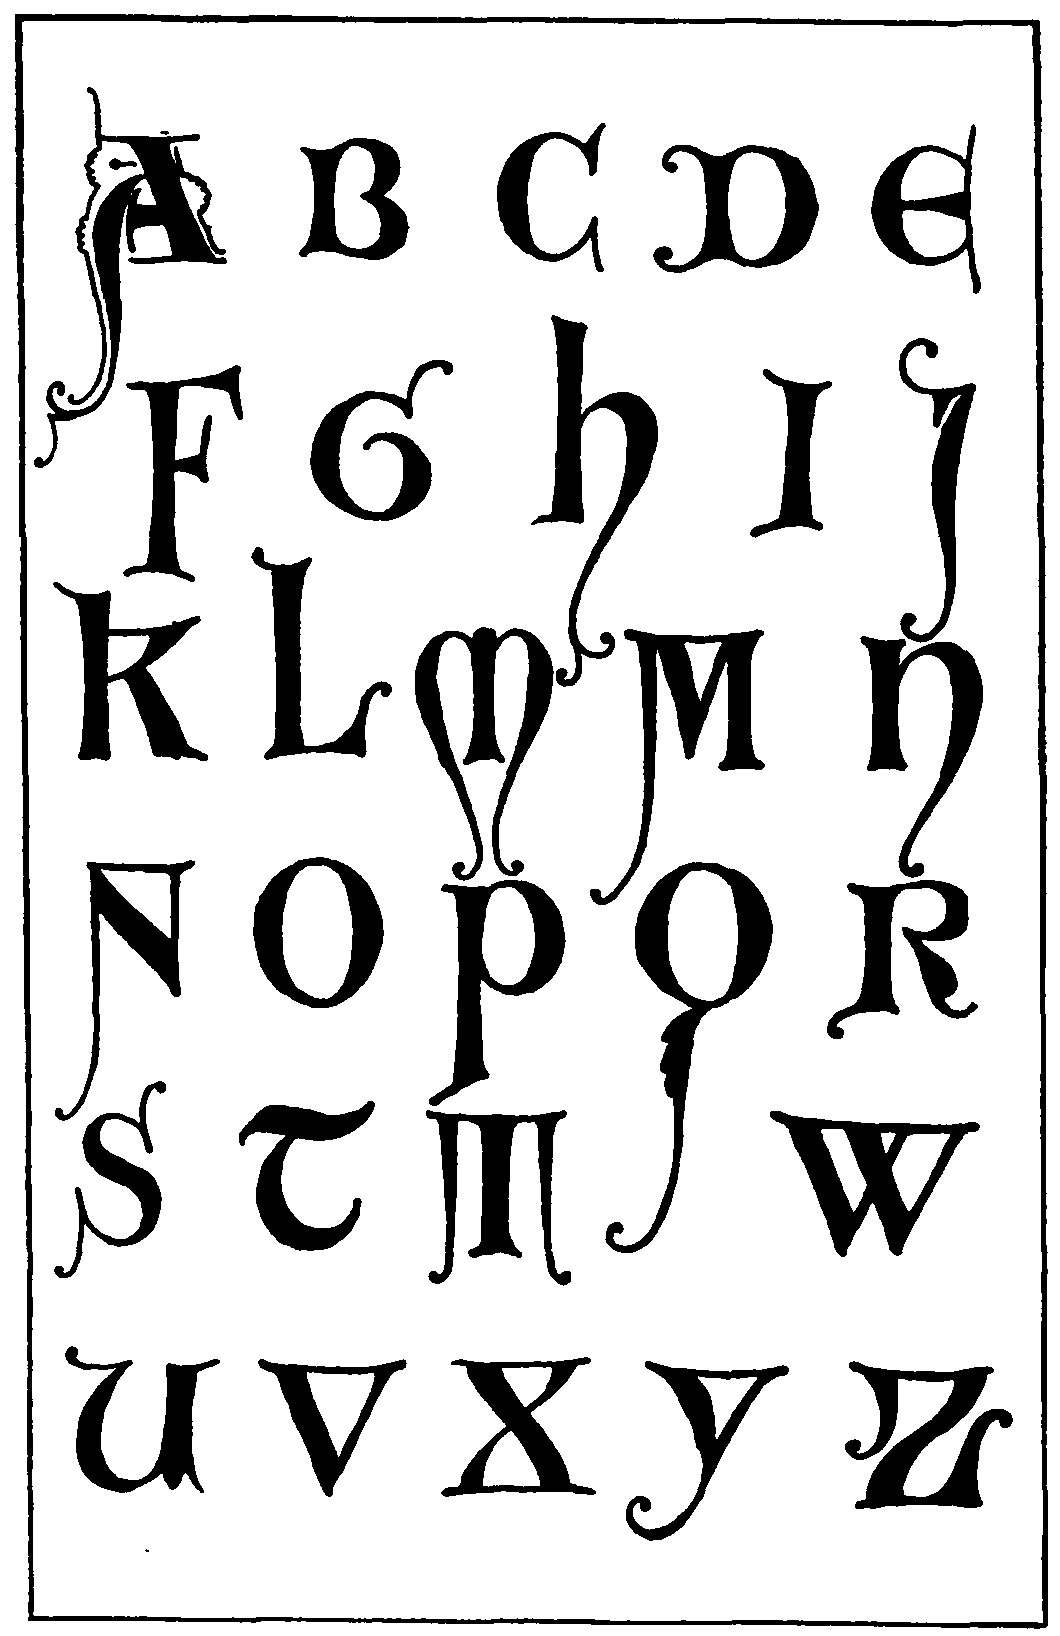 A B C D E
F G h I J
K L M M N
N O P Q R
S T T W
U V X Y Z